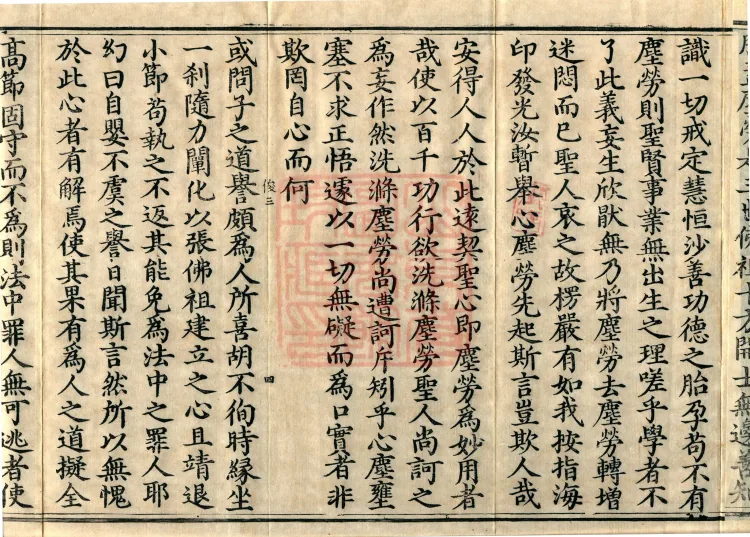 識一切戒定慧恒沙善功德之胎孕苟不有
塵勞則聖賢事業無出生之理嗟乎學者不
了此義妄生欣猒無乃將塵勞去塵勞轉增
迷悶而已聖人哀之故楞嚴有如我按指海
印發光汝暫舉心塵勞先起斯言豈欺人哉
安得人人於此逺契聖心即塵勞為妙用者
哉使以百千功行欲洗滌塵勞聖人尚訶之
為妄作然洗滌塵勞尚遭訶斥矧乎心塵壅
塞不求正悟遽以一切無礙而為口實者非
欺罔自心而何
俊三
四
或問子之道譽頗為人所喜胡不徇時緣坐
一剎隨力闡化以張佛祖建立之心且靖退
小節苟執之不返其能免為法中之罪人耶
幻曰自嬰不虞之譽日聞斯言然所以無愧
於此心者有解焉使其果有為人之道擬全
高節固守而不為則法中罪人無可逃者使